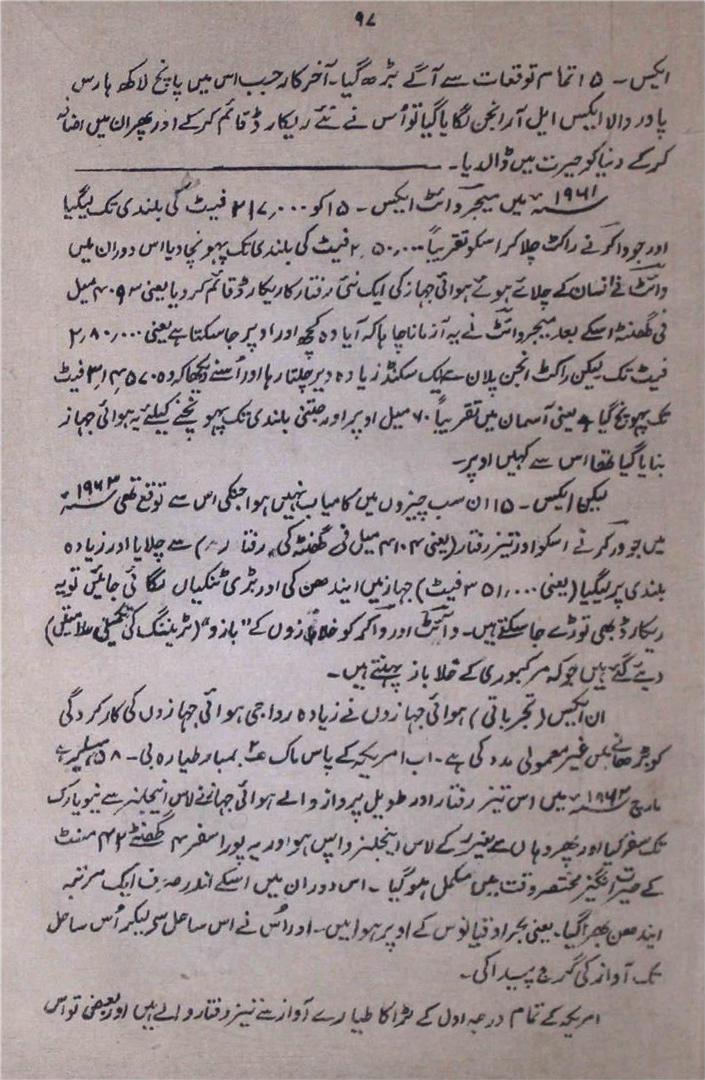 ۹۷
ایکس - ۱۵ تمام توقعات سے آگے بڑھ گیا۔ آخر کار جب اس میں پانچ لاکھ ہارس
پاور والا ایکس ایل آر انجن لگایا گیا تو اُس نے نئے ریکارڈ قائم کر کے اور پھر ان میں اضافہ
کر کے دنیا کو حیرت میں ڈالدیا۔
۱۹۶۱ء میں میجر وائٹ ایکس - ۱۵ کو ۲۱۷٫۰۰۰ فیٹ کی بلندی تک لیگیا
اور جو واکر نے راکٹ چلا کر اسکو تقریباً ۲٫۵۰٫۰۰۰ فیٹ کی بلندی تک پہونچا دیا اس دوران میں
وائٹ نے انسان کے چلائے ہوئے ہوائی جہاز کی ایک نئی رفتار کا ریکارڈ قائم کر دیا یعنی ۴۰۹۳ میل
فی گھنٹہ اسکے بعد میجر وائٹ نے یہ آزمانا چاہا کہ آیا وہ کچھ اور اوپر جا سکتا ہے یعنی ۲٫۸۰٫۰۰۰
فیٹ تک لیکن راکٹ انجن پلان سے ایک سکنڈ زیادہ دیر چلتا رہا اور اُسنے دیکھا کہ وہ ۳٫۱۴٫۵۷۰ فیٹ
تک پہونچ گیا ہے یعنی آسمان میں تقریباً ۶۰ میل اوپر اور جتنی بلندی تک پہونچنے کیلئے یہ ہوائی جہاز
بنایا گیا تھا اس سے کہیں اوپر۔
لیکن ایکس - ۱۵ ان سب چیزوں میں کامیاب نہیں ہوا جنکی اس سے توقع تھی ۱۹۶۳ء
میں جو ورکر نے اسکو اور تیز رفتار (یعنی ۴۱۰۴ میل فی گھنٹہ کی رفتار) سے چلایا اور زیادہ
بلندی پر لیگیا (یعنی ۳۵۱٫۰۰۰ فیٹ) جہاز میں ایندھن کی اور بڑی ٹنکیاں لگائی جائیں تو یہ
ریکارڈ بھی توڑے جا سکتے ہیں۔ وائٹ اور واکر کو خلابازوں کے "بازو" (ٹریننگ کی تکمیلی علامتیں)
دیئے گئے ہیں جو کہ مرکبوری کے خلا باز پہنتے ہیں۔
ان ایکس (تجرباتی) ہوائی جہازوں نے زیادہ رواجی ہوائی جہازوں کی کارکردگی
کو بڑھانے میں غیر معمولی مدد کی ہے۔ اب امریکہ کے پاس ماک ۲ بمبار طیارہ بی - ۵۸ ہسلر ہے
مارچ ۱۹۶۲ء میں اس تیز رفتار اور طویل پرواز والے ہوائی جہاز نے لاس انجلز سے نیویارک
تک سفر کیا اور پھر وہاں سے بغیر کے لاس اینجلز واپس ہوا اور یہ پورا سفر ۴ گھنٹے ۴۲ منٹ
کے حیرت انگیز مختصر وقت میں مکمل ہو گیا۔ اس دوران میں اسکے اندر صرف ایک مرتبہ
ایندھن بھرا گیا۔ یعنی بحر اوقیانوس کے اوپر ہوا میں۔ اور اُس نے اس ساحل سے لیکر اُس ساحل
تک آواز کی گرج پیدا کی۔
امریکہ کے تمام درجہ اول کے لڑاکا طیارے آواز سے تیز رفتار والے ہیں اور بعضی تو اس